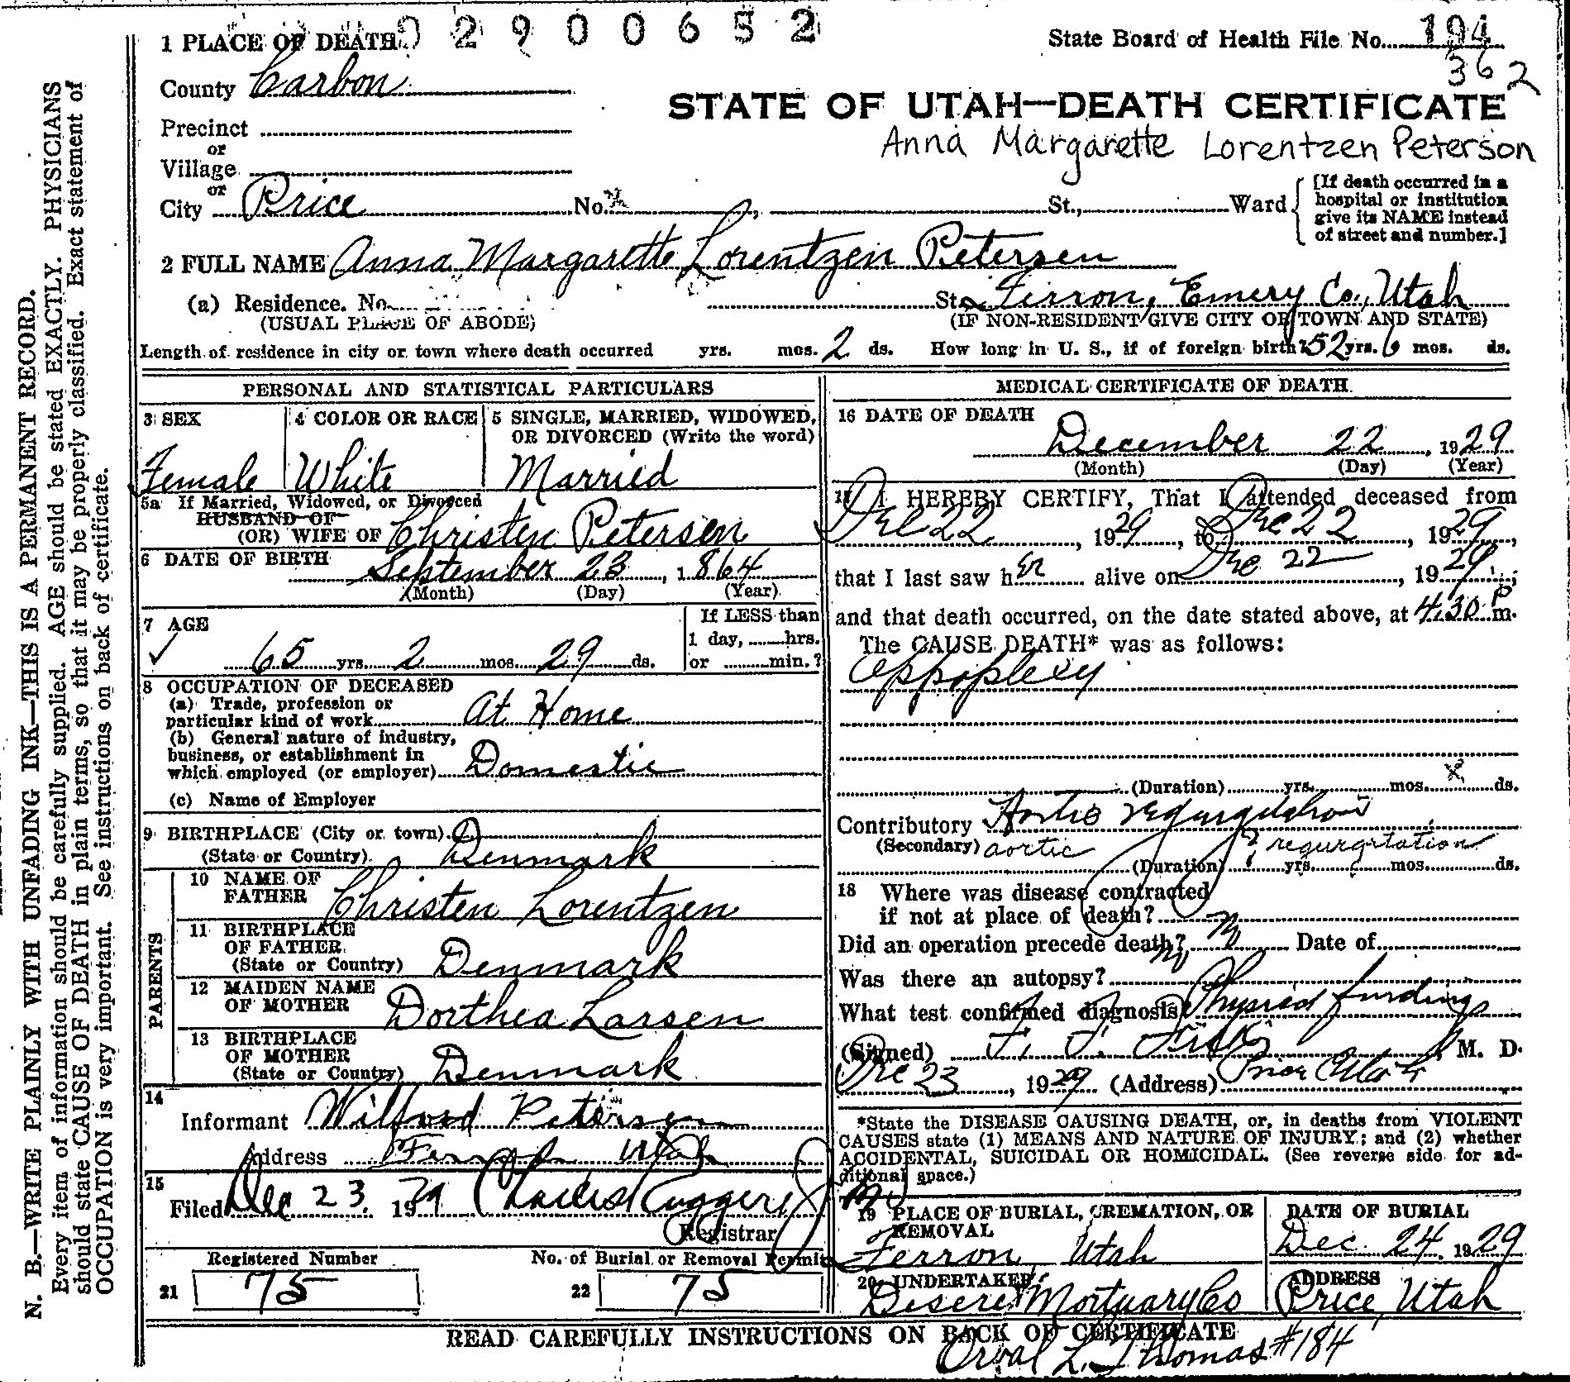 02900652
1 PLACE OF DEATH
State Board of Health File No. 194
362
County Carbon
STATE OF UTAH—DEATH CERTIFICATE
Anna Margarette Lorentzen Peterson
Precinct
or
Village
or
City Price No. St., Ward
[If death occurred in a
hospital or institution
give its NAME instead
of street and number.]
2 FULL NAME Anna Margarette Lorentzen Petersen
(a) Residence. No. St. Ferron, Emery Co., Utah
(USUAL PLACE OF ABODE) (IF NON-RESIDENT GIVE CITY OR TOWN AND STATE)
Length of residence in city or town where death occurred yrs. mos. 2 ds. How long in U. S., if of foreign birth? 52 yrs. 6 mos. ds.
PERSONAL AND STATISTICAL PARTICULARS
3 SEX
Female
4 COLOR OR RACE
White
5 SINGLE, MARRIED, WIDOWED,
OR DIVORCED (Write the word)
Married
5a If Married, Widowed, or Divorced
HUSBAND OF
(OR) WIFE OF Christen Petersen
6 DATE OF BIRTH September 23, 1864
(Month) (Day) (Year)
7 AGE
65 yrs. 2 mos. 29 ds.
If LESS than
1 day, hrs.
or min.?
8 OCCUPATION OF DECEASED
(a) Trade, profession or
particular kind of work At Home
(b) General nature of industry,
business, or establishment in
which employed (or employer) Domestic
(c) Name of Employer
9 BIRTHPLACE (City or town)
(State or Country) Denmark
PARENTS
10 NAME OF
FATHER Christen Lorentzen
11 BIRTHPLACE
OF FATHER
(State or Country) Denmark
12 MAIDEN NAME
OF MOTHER Dorthea Larsen
13 BIRTHPLACE
OF MOTHER
(State or Country) Denmark
14
Informant Wilford Petersen
Address Ferron Utah
15
Filed Dec 23 1929
Registrar
Registered Number
21 75
No. of Burial or Removal Permit
22 75
MEDICAL CERTIFICATE OF DEATH
16 DATE OF DEATH
December 22, 1929
(Month) (Day) (Year)
17 I HEREBY CERTIFY, That I attended deceased from
Dec 22, 1929, to Dec 22, 1929,
that I last saw her alive on Dec. 22, 1929;
and that death occurred, on the date stated above, at 4.30 P m.
The CAUSE DEATH* was as follows:
Appoplexy
(Duration) yrs. mos. x ds.
Contributory Aortic regurgitation
(Secondary) aortic ? regurgitation
(Duration) yrs. mos. ds.
18 Where was disease contracted
if not at place of death?
Did an operation precede death? no Date of
Was there an autopsy? no
What test confirmed diagnosis? Physical findings
(Signed) F. F. Fisk, M. D.
Dec 23, 1929 (Address) Price Utah
*State the DISEASE CAUSING DEATH, or, in deaths from VIOLENT
CAUSES state (1) MEANS AND NATURE OF INJURY; and (2) whether
ACCIDENTAL, SUICIDAL OR HOMICIDAL. (See reverse side for ad-
ditional space.)
19 PLACE OF BURIAL, CREMATION, OR
REMOVAL
Ferron, Utah
DATE OF BURIAL
Dec. 24. 1929
20 UNDERTAKER
Deseret Mortuary Co
ADDRESS
Price, Utah
READ CAREFULLY INSTRUCTIONS ON BACK OF CERTIFICATE
Orval L. Thomas #184
N. B.—WRITE PLAINLY WITH UNFADING INK—THIS IS A PERMANENT RECORD.
Every item of information should be carefully supplied. AGE should be stated EXACTLY. PHYSICIANS
should state CAUSE OF DEATH in plain terms, so that it may be properly classified. Exact statement of
OCCUPATION is very important. See instructions on back of certificate.